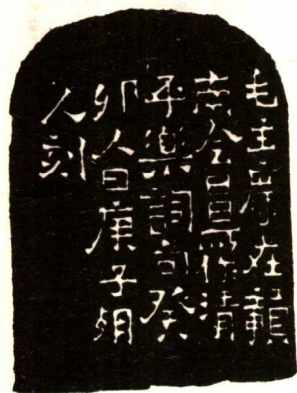 毛主席在贛
南会昌作清
平樂詞句癸
卯人日庚子
人刻